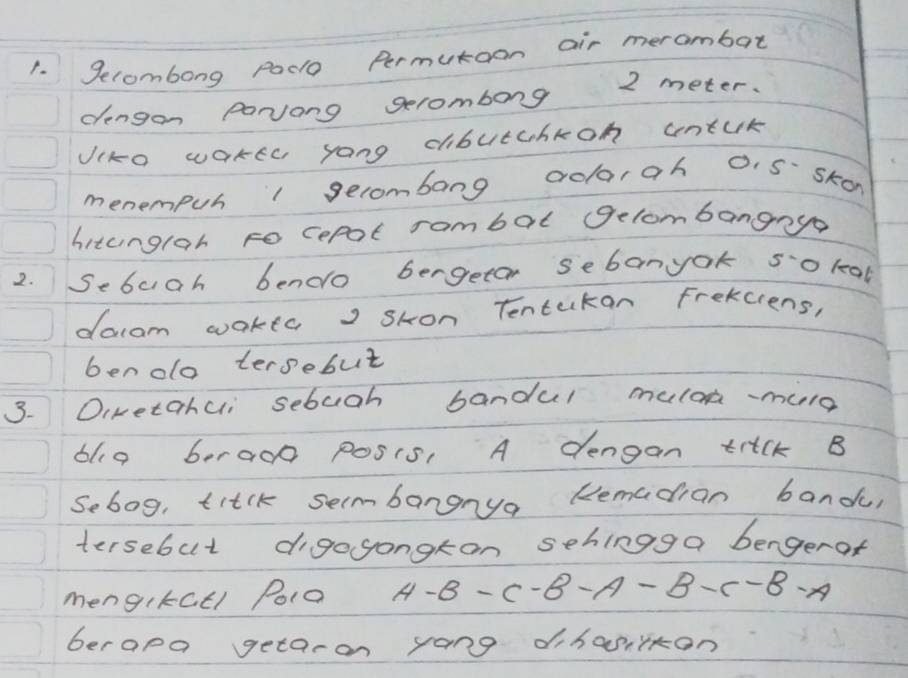 1. gelombang pada permukaan air merambat
dengan panjang gelombang 2 meter.
Jika waktu yang dibutuhkan untuk
menempuh 1 gelombang adalah 0,5 skon
hitunglah cepat rambat gelombangnya
2. Sebuah benda bergetar sebanyak 50 kali
dalam waktu 2 skon Tentukan Frekuensi
benda tersebut
3. Diketahui sebuah bandul mulaa -mula
blia berada posisi A dengan titik B
sebagi titik seimbangnya kemudian bandul
tersebut digoyongkan sehingga bergerat
mengikuti Pola A-B-C-B-A-B-C-B-A
berapa getaran yang dihasilkan